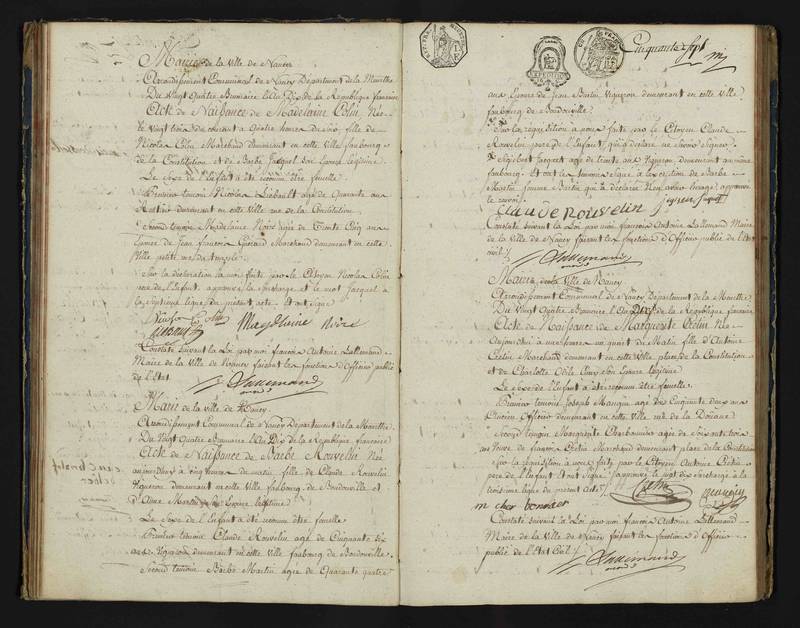 Mairie de la Ville de Nancy
Arrondissement Communal de Nancy Département de la Meurthe
Du Vingt quatre Brumaire l'An Dix de la République française
Acte de Naissance de Madelaine Colin Née
le vingt trois du courant à Quatre heures du soir fille de
Nicolas Colin Marchand demeurant en cette ville faubourg
de la Constitution et de Barbe Jacquel son Epouse légitime
Le sexe de l'Enfant a été reconnu être femelle
Premier temoin Nicolas Liébault agé de Quarante ans
demeurant en cette Ville rue de la Constitution
Second temoin Madelaine Noiré agée de Trente Cinq ans
Epouse de Jean françois Gérard Marchand demeurant en cette
Ville petite rue
Sur la déclaration à moi faite par le Citoyen Nicolas Colin
père de l'Enfant, approuvé la surcharge et le mot Jacquel à
la septieme ligne du présent acte. Et ont signé
Magdlaine Noiré
Constaté suivant la Loi par moi françois Antoine Lallemand
Maire de la Ville de Nancy faisant les fonctions d'Officier public
de l'Etat
Lallemand
Mairie de la ville de Nancy
Arrondissement Communal de Nancy Département de la Meurthe
Du Vingt quatre Brumaire l'An Dix de la République française
Acte de Naissance de Barbe Rouvelin Née
aujourd'huy à cinq heures du matin fille de Claude Rouvelin
Vigneron demeurant en cette Ville faubourg de Boudonville et
d'Anne Martin son Epouse légitime
Le sexe de l'Enfant a été reconnu être femelle
Premier témoin Claude Rouvelin agé de Cinquante six
ans Vigneron demeurant en cette ville faubourg de Boudonville.
Second témoin Barbe Martin agée de Quarante quatre
Cinquante sept
ans Epouse de Jean Bastin Vigneron demeurant en cette Ville
faubourg de Boudonville.
Sur la réquisition à nous faite par le Citoyen Claude
Rouvelin père de l'Enfant qui a déclaré ne savoir signer
Sigisbert Jacquot agé de trente ans Vigneron demeurant au même
faubourg. Et ont les témoins signé à l'exception de Barbe
Martin femme Bastin qui a déclaré n'en savoir l'usage, approuvé
le renvoi.
Claude Rouvelin
Constaté suivant la Loi par moi françois Antoine Lallemand Maire
de la Ville de Nancy faisant les fonctions d'Officier public de l'Etat
civil
Lallemand
Mairie de la Ville de Nancy
Arrondissement Communal de Nancy Département de la Meurthe
Du Vingt quatre Brumaire l'An Dix de la République française
Acte de Naissance de Marguerite Crétin Née
Aujourd'hui à une heure un quart du Matin fille d'Antoine
Crétin Marchand demeurant en cette Ville place de la Constitution
et de Charlotte Odile son Epouse légitime
Le sexe de l'Enfant a été reconnu être femelle.
Premier témoin Joseph Mangin agé de Cinquante deux ans
Ancien Officier demeurant en cette Ville rue de la Douane
Second témoin Marguerite Charbonnier agée de Soixante trois
ans Veuve de françois Crétin Marchand demeurant place de la Constitution
Sur la réquisition à nous faite par le Citoyen Antoine Crétin
père de l'Enfant. Et ont signé. J'approuve le mot surchargé à la
troisieme ligne du présent Acte.
Constaté suivant la Loi par moi françois Antoine Lallemand
Maire de la Ville de Nancy faisant les fonctions d'Officier
public de l'Etat Civil
Lallemand